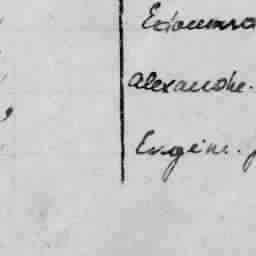 Edouard
Alexandre.
Eugène.